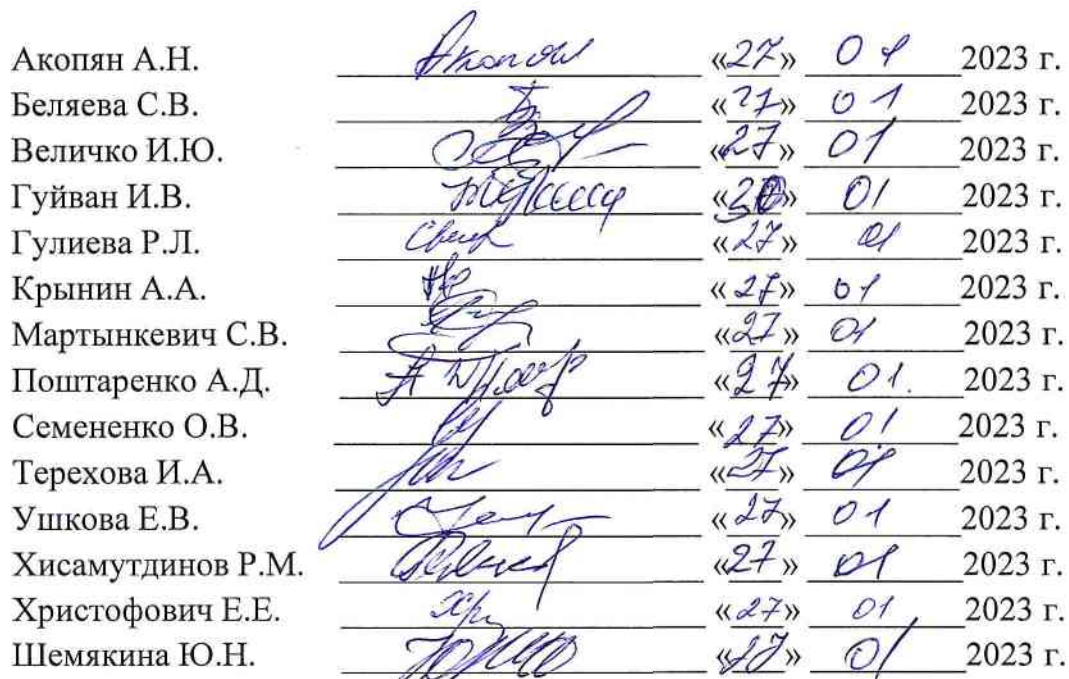 Акопян А.Н. Акопян «27» 01 2023 г.
Беляева С.В. «27» 01 2023 г.
Величко И.Ю. «27» 01 2023 г.
Гуйван И.В. 01 2023 г.
Гулиева Р.Л. «27» 01 2023 г.
Крынин А.А. «27» 01 2023 г.
Мартынкевич С.В. «27» 01 2023 г.
Поштаренко А.Д. «27» 01. 2023 г.
Семененко О.В. «27» 01 2023 г.
Терехова И.А. «27» 01 2023 г.
Ушкова Е.В. «27» 01 2023 г.
Хисамутдинов Р.М. «27» 01 2023 г.
Христофович Е.Е. «27» 01 2023 г.
Шемякина Ю.Н. «27» 01 2023 г.